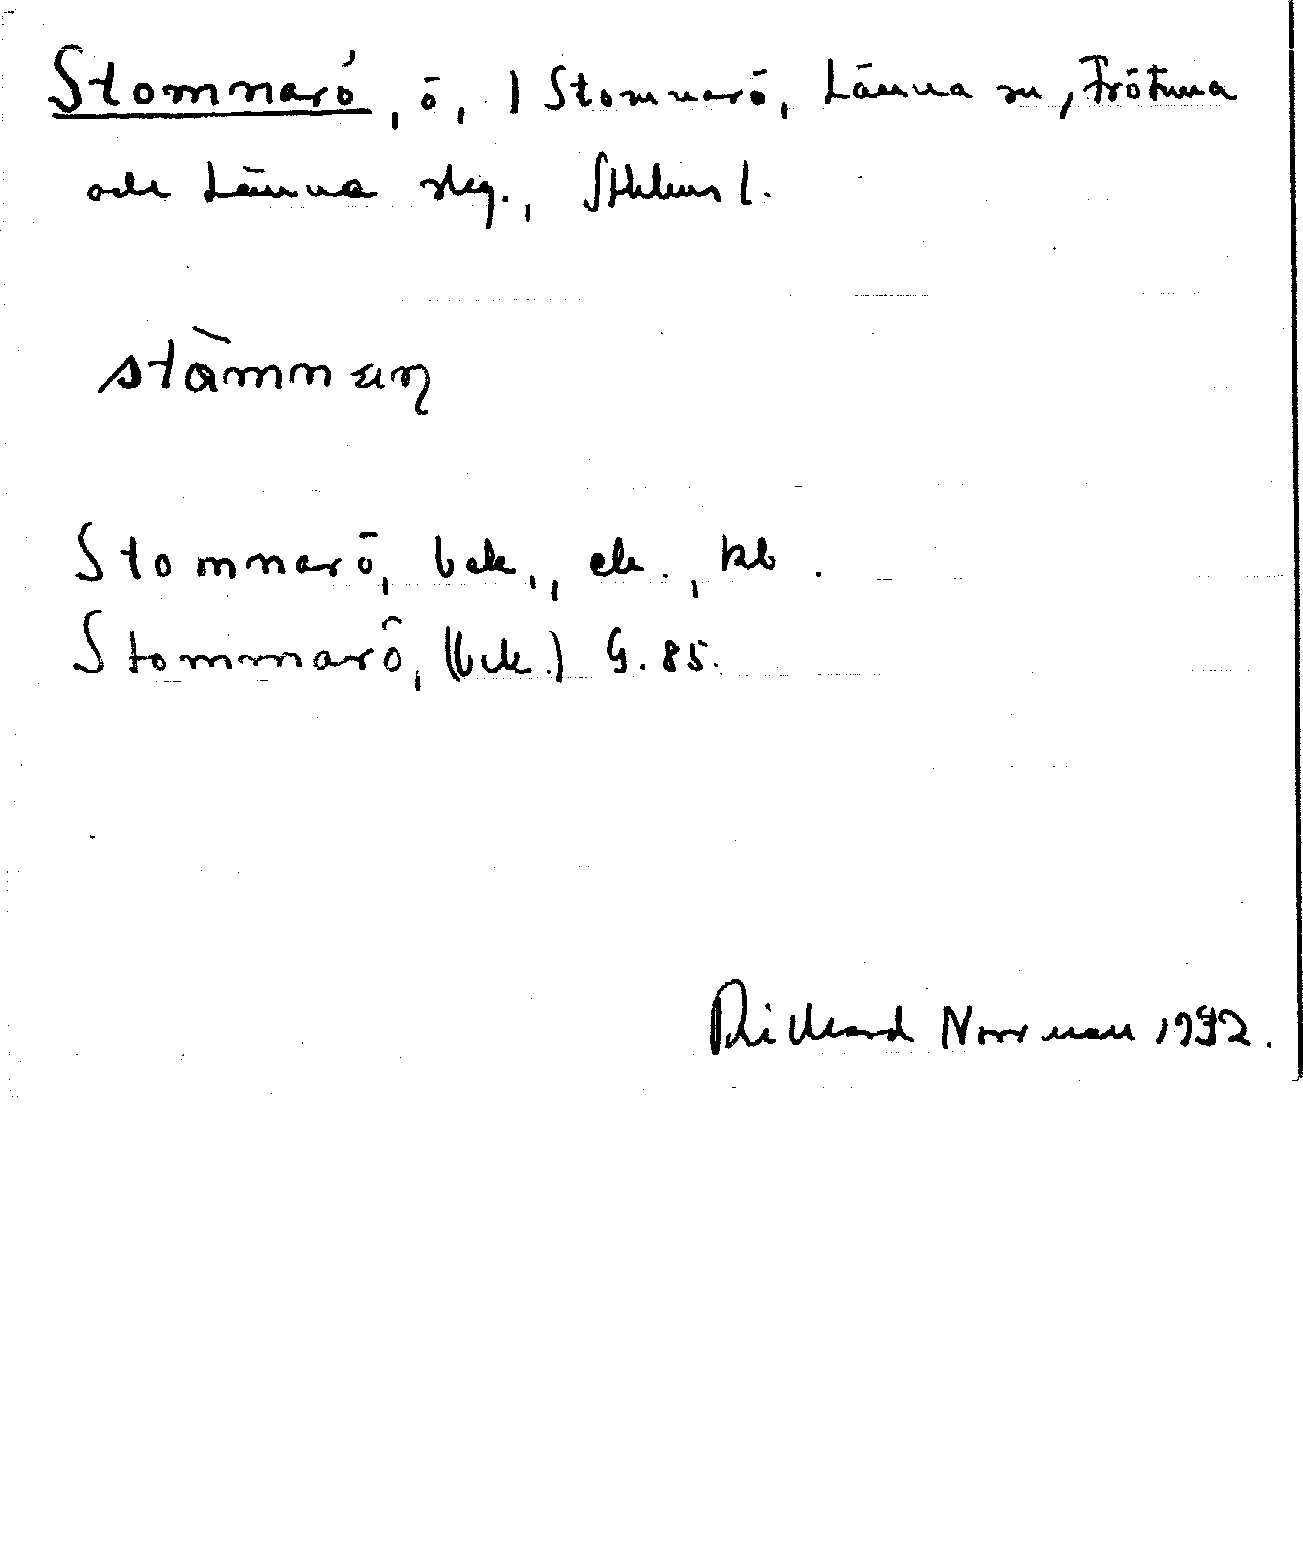 Stomnarö, ö, / Stomnarö, Länna sn, Frötuna
och Länna skg., Sthlms l.
stämnarö
Stomnarö, bek., ek., kb.
Stommarö, (bek.) G. 85.
Rickard Norrman 1932.